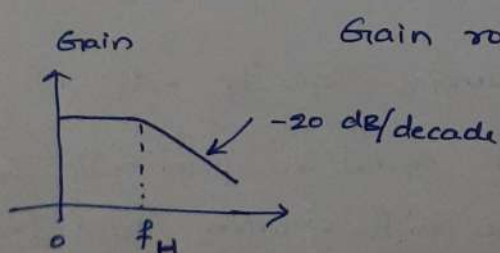 Gain
Gain
-20 dB/decade
0
fH